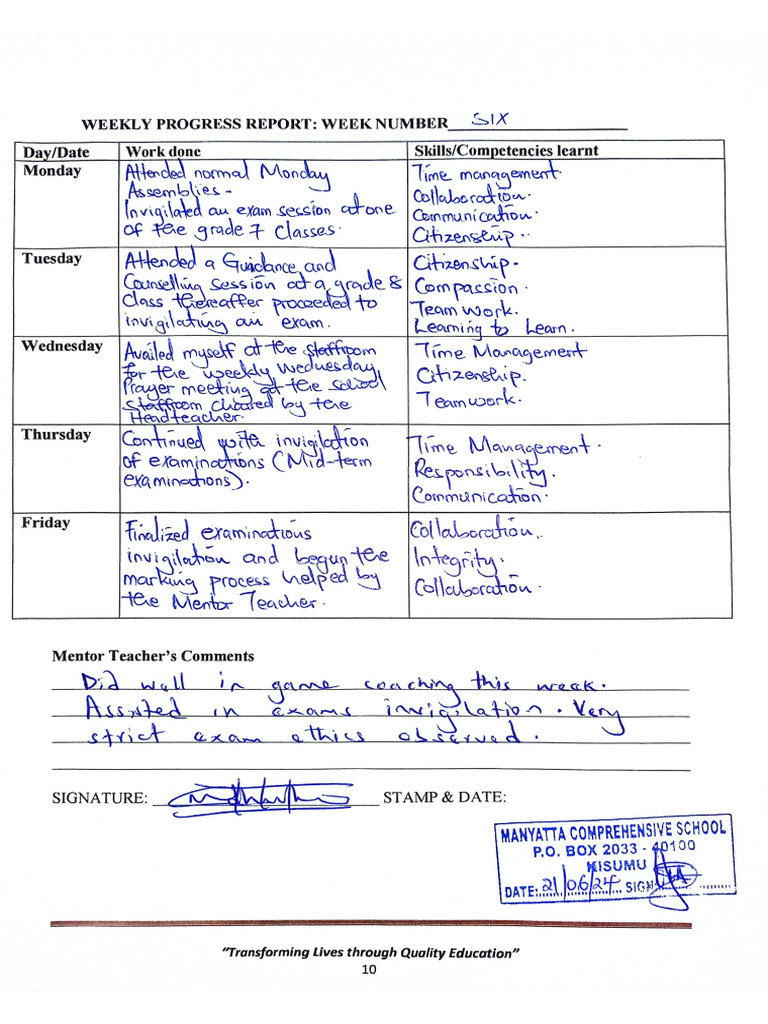 WEEKLY PROGRESS REPORT: WEEK NUMBER SIX
Day/Date Work done Skills/Competencies learnt
Monday
Attended normal Monday
Assemblies -
Invigilated an exam session at one
of the grade 7 Classes.
Time management.
Collaboration.
Communication.
Citizenship.
Tuesday
Attended a Guidance and
Counselling session at a grade 8
Class thereafter proceeded to
invigilating an exam.
Citizenship.
Compassion.
Team Work.
Learning to Learn.
Wednesday
Availed myself at the staffroom
for the weekly Wednesday
Prayer meeting at the school
staffroom chaired by the
Headteacher.
Time Management
Citizenship.
Teamwork.
Thursday
Continued with invigilation
of examinations (Mid-term
examinations).
Time Management.
Responsibility.
Communication.
Friday
Finalized examinations
invigilation and begun the
marking process helped by
the Mentor Teacher.
Collaboration.
Integrity.
Collaboration.
Mentor Teacher's Comments
Did well in game coaching this week.
Assisted in exams invigilation. Very
strict exam ethics observed.
SIGNATURE: STAMP & DATE:
MANYATTA COMPREHENSIVE SCHOOL
P.O. BOX 2033 - 40100
KISUMU
DATE: 21/06/24 SIGN
"Transforming Lives through Quality Education"
10